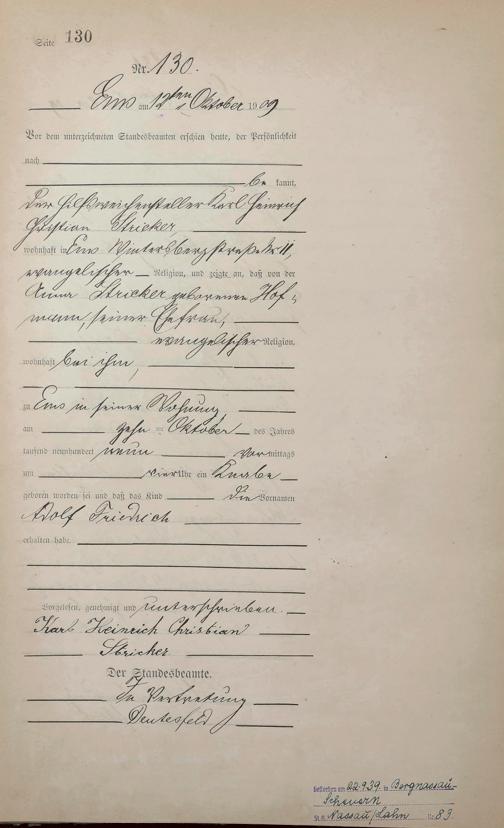 Seite 130
Nr. 130.
Ems am 12ten Oktober 1909
Vor dem unterzeichneten Standesbeamten erschien heute, der Persönlichkeit
nach
be kannt,
der Hilfsweichensteller Karl Heinrich
Christian Stricker,
wohnhaft in Ems Wintersbergstraße Nr. 11,
evangelischer Religion, und zeigte an, daß von der
Anna Stricker geborenen Hof-
mann, seiner Ehefrau,
evangelischer Religion,
wohnhaft bei ihm,
zu Ems in seiner Wohnung,
am zehn = Oktober des Jahres
tausend neunhundert neun vor mittags
um vier Uhr ein Knabe
geboren worden sei und daß das Kind die Vornamen
Adolf Friedrich
erhalten habe.
Vorgelesen, genehmigt und unterschrieben.
Karl Heinrich Christian
Stricker
Der Standesbeamte.
In Vertretung
Deutesfeld
am 22.9.39 in Bergnassau-
Scheuern
Nassau/Lahn Nr. 83